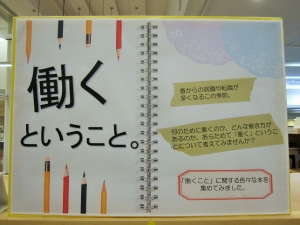 働く
ということ。
春からの就職や転職が
多くなるこの季節。
何のために働くのか、どんな働き方が
あるのか、あらためて「働く」というこ
とについて考えてみませんか？
「働くこと」に関する色々な本を
集めてみました。